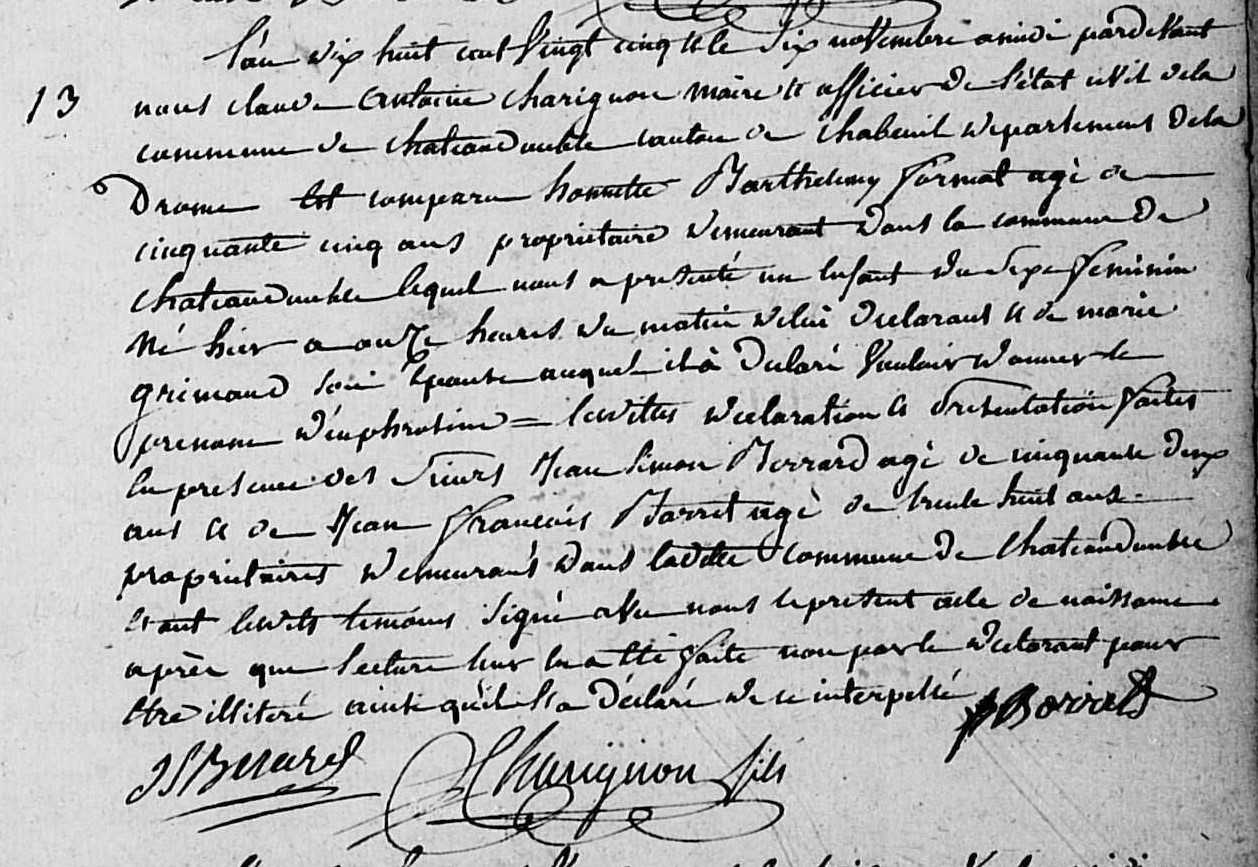 L'an dix huit cent vingt cinq et le six novembre a midi pardevant
13 nous claude antoine charignon maire et officier de l'état civil de la
commune de chateaudouble canton de chabeuil departement de la
Drome est comparu honnette Barthelemy format agè de
cinquante cinq ans proprietaire demeurant dans la commune de
chateaudouble lequel nous a presenté un enfant du sexe feminin
né hier a onze heures du matin de lui declarant et de marie
grimaud son epouse auquel il à declaré vouloir donner le
prenom d'euphrosine = lesdittes declaration et presentation faites
en presence des sieurs Jean simon Berrard agè de cinquante deux
ans et de Jean françois Barret agè de trente huit ans
proprietaires demeurans dans laditte commune de chateaudouble
et ont lesdits temoins signé avec nous le present acte de naissance
après que lecture leur en a été faite non pas le declarant pour
etre illiteré ainsi qu'il l'a déclaré de ce interpellé
JS Berard Charignon fils Barret